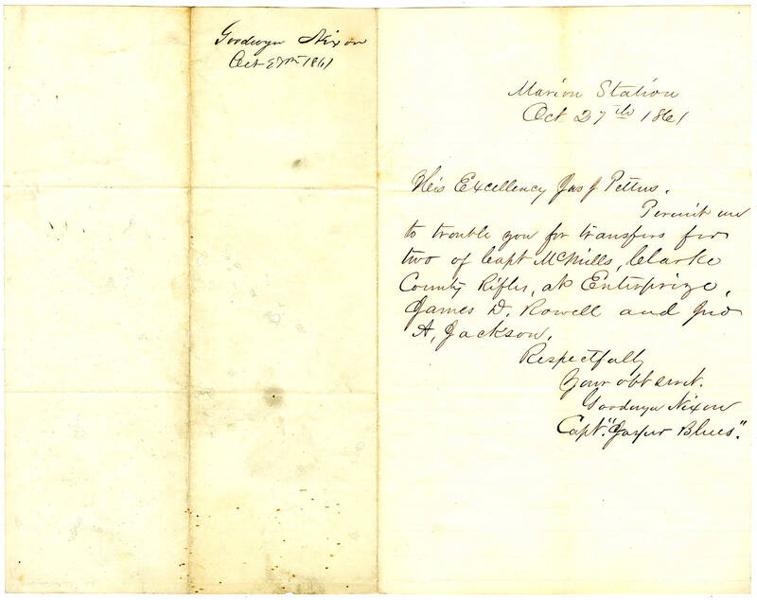 Goodwyn Nixon
Oct 27th 1861
Marion Station
Oct 27th 1861
His Excellency Jno J Pettus.
Permit me
to trouble you for transfers for
two of Capt McNills, Clarke
County Rifles, at Enterprize,
James D. Rowell and Jno
A, Jackson.
Respectfully
Your obt servt.
Goodwyn Nixon
Capt. "Jasper Blues".